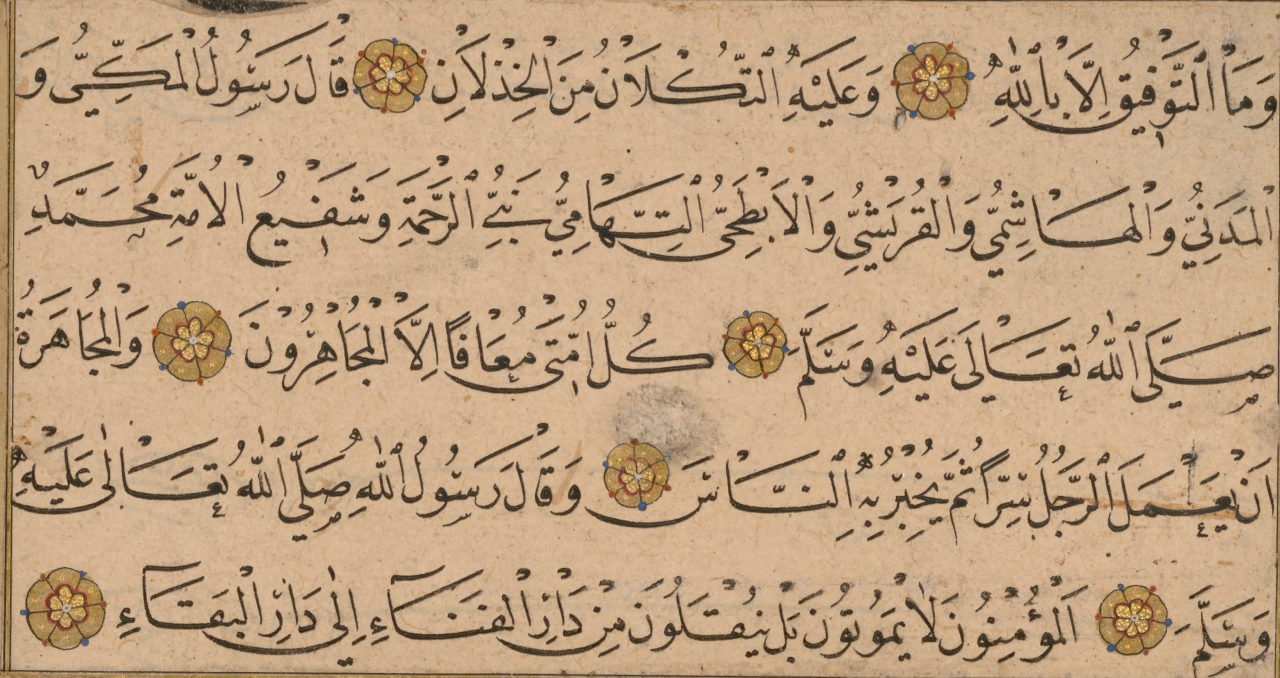 وَمَا التَّوْفِيقُ اِلَّا بِاللّٰهِ وَعَلَيْهِ التُّكْلَانُ مِنَ الْخِذْلَانِ قَالَ رَسُولُ الْمَكِّيُّ وَ
الْمَدَنِيُّ وَالْهَاشِمِيُّ وَالْقُرَيْشِيُّ وَالْاَبْطَحِيُّ التِّهَامِيُّ نَبِيُّ الرَّحْمَةِ وَشَفِيعُ الْاُمَّةِ مُحَمَّدٌ
صَلَّى اللّٰهُ تَعَالَى عَلَيْهِ وَسَلَّمَ كُلُّ اُمَّتِى مُعَافًا اِلَّا الْمُجَاهِرُونَ وَالْمُجَاهَرَةُ
اَنْ يَعْمَلَ الرَّجُلُ سِرًّا ثُمَّ يُخْبِرُ بِهِ النَّاسَ وَقَالَ رَسُولُ اللّٰهِ صَلَّى اللّٰهُ تَعَالٰى عَلَيْهِ
وَسَلَّمَ اَلْمُؤْمِنُونَ لَا يَمُوتُونَ بَلْ يَنْقَلُونَ مِنْ دَارِ الْفَنَاءِ اِلٰى دَارِ الْبَقَاءِ